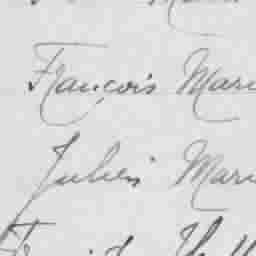 François Mari
Julien Mari